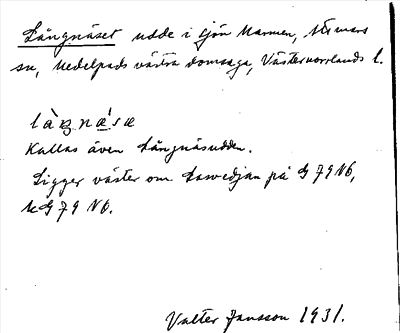 Långnäset udde i sjön Marmen, Attmars
sn, Medelpads västra domsaga, Västernorrlands l.
Kallas även Långnäsudden.
Ligger väster om på G 79 Vb,
G 79 Vb.
Valter Jansson 1931.